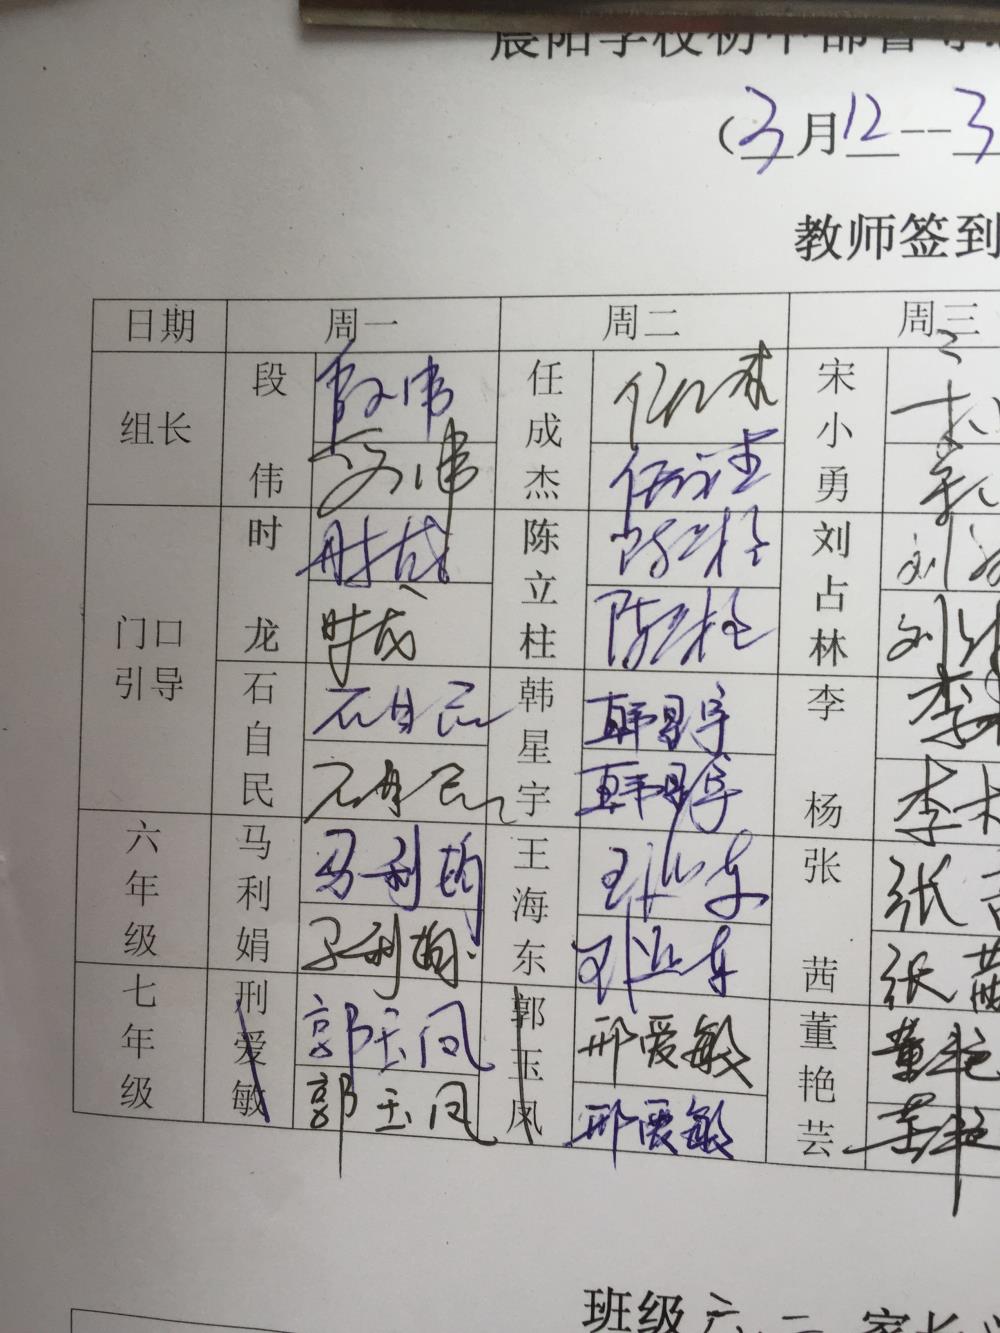 晨阳学校初中部督导
(3月12--3
教师签到
日期 周一 周二 周三
组长 段伟 段伟 任成杰 任成杰 宋小勇
段伟 任成杰
门口引导 时龙 时龙 陈立柱 陈立柱 刘占林 刘
时龙 陈立柱 刘
石自民 石自民 韩星宇 韩星宇 李杨 李
石自民 韩星宇 李
六年级 马利娟 马利娟 王海东 王海东 张茜 张
马利娟 王海东 张茜
七年级 刑爱敏 郭玉凤 郭玉凤 邢爱敏 董艳芸 董艳
郭玉凤 邢爱敏 董艳
班级六.二 家长